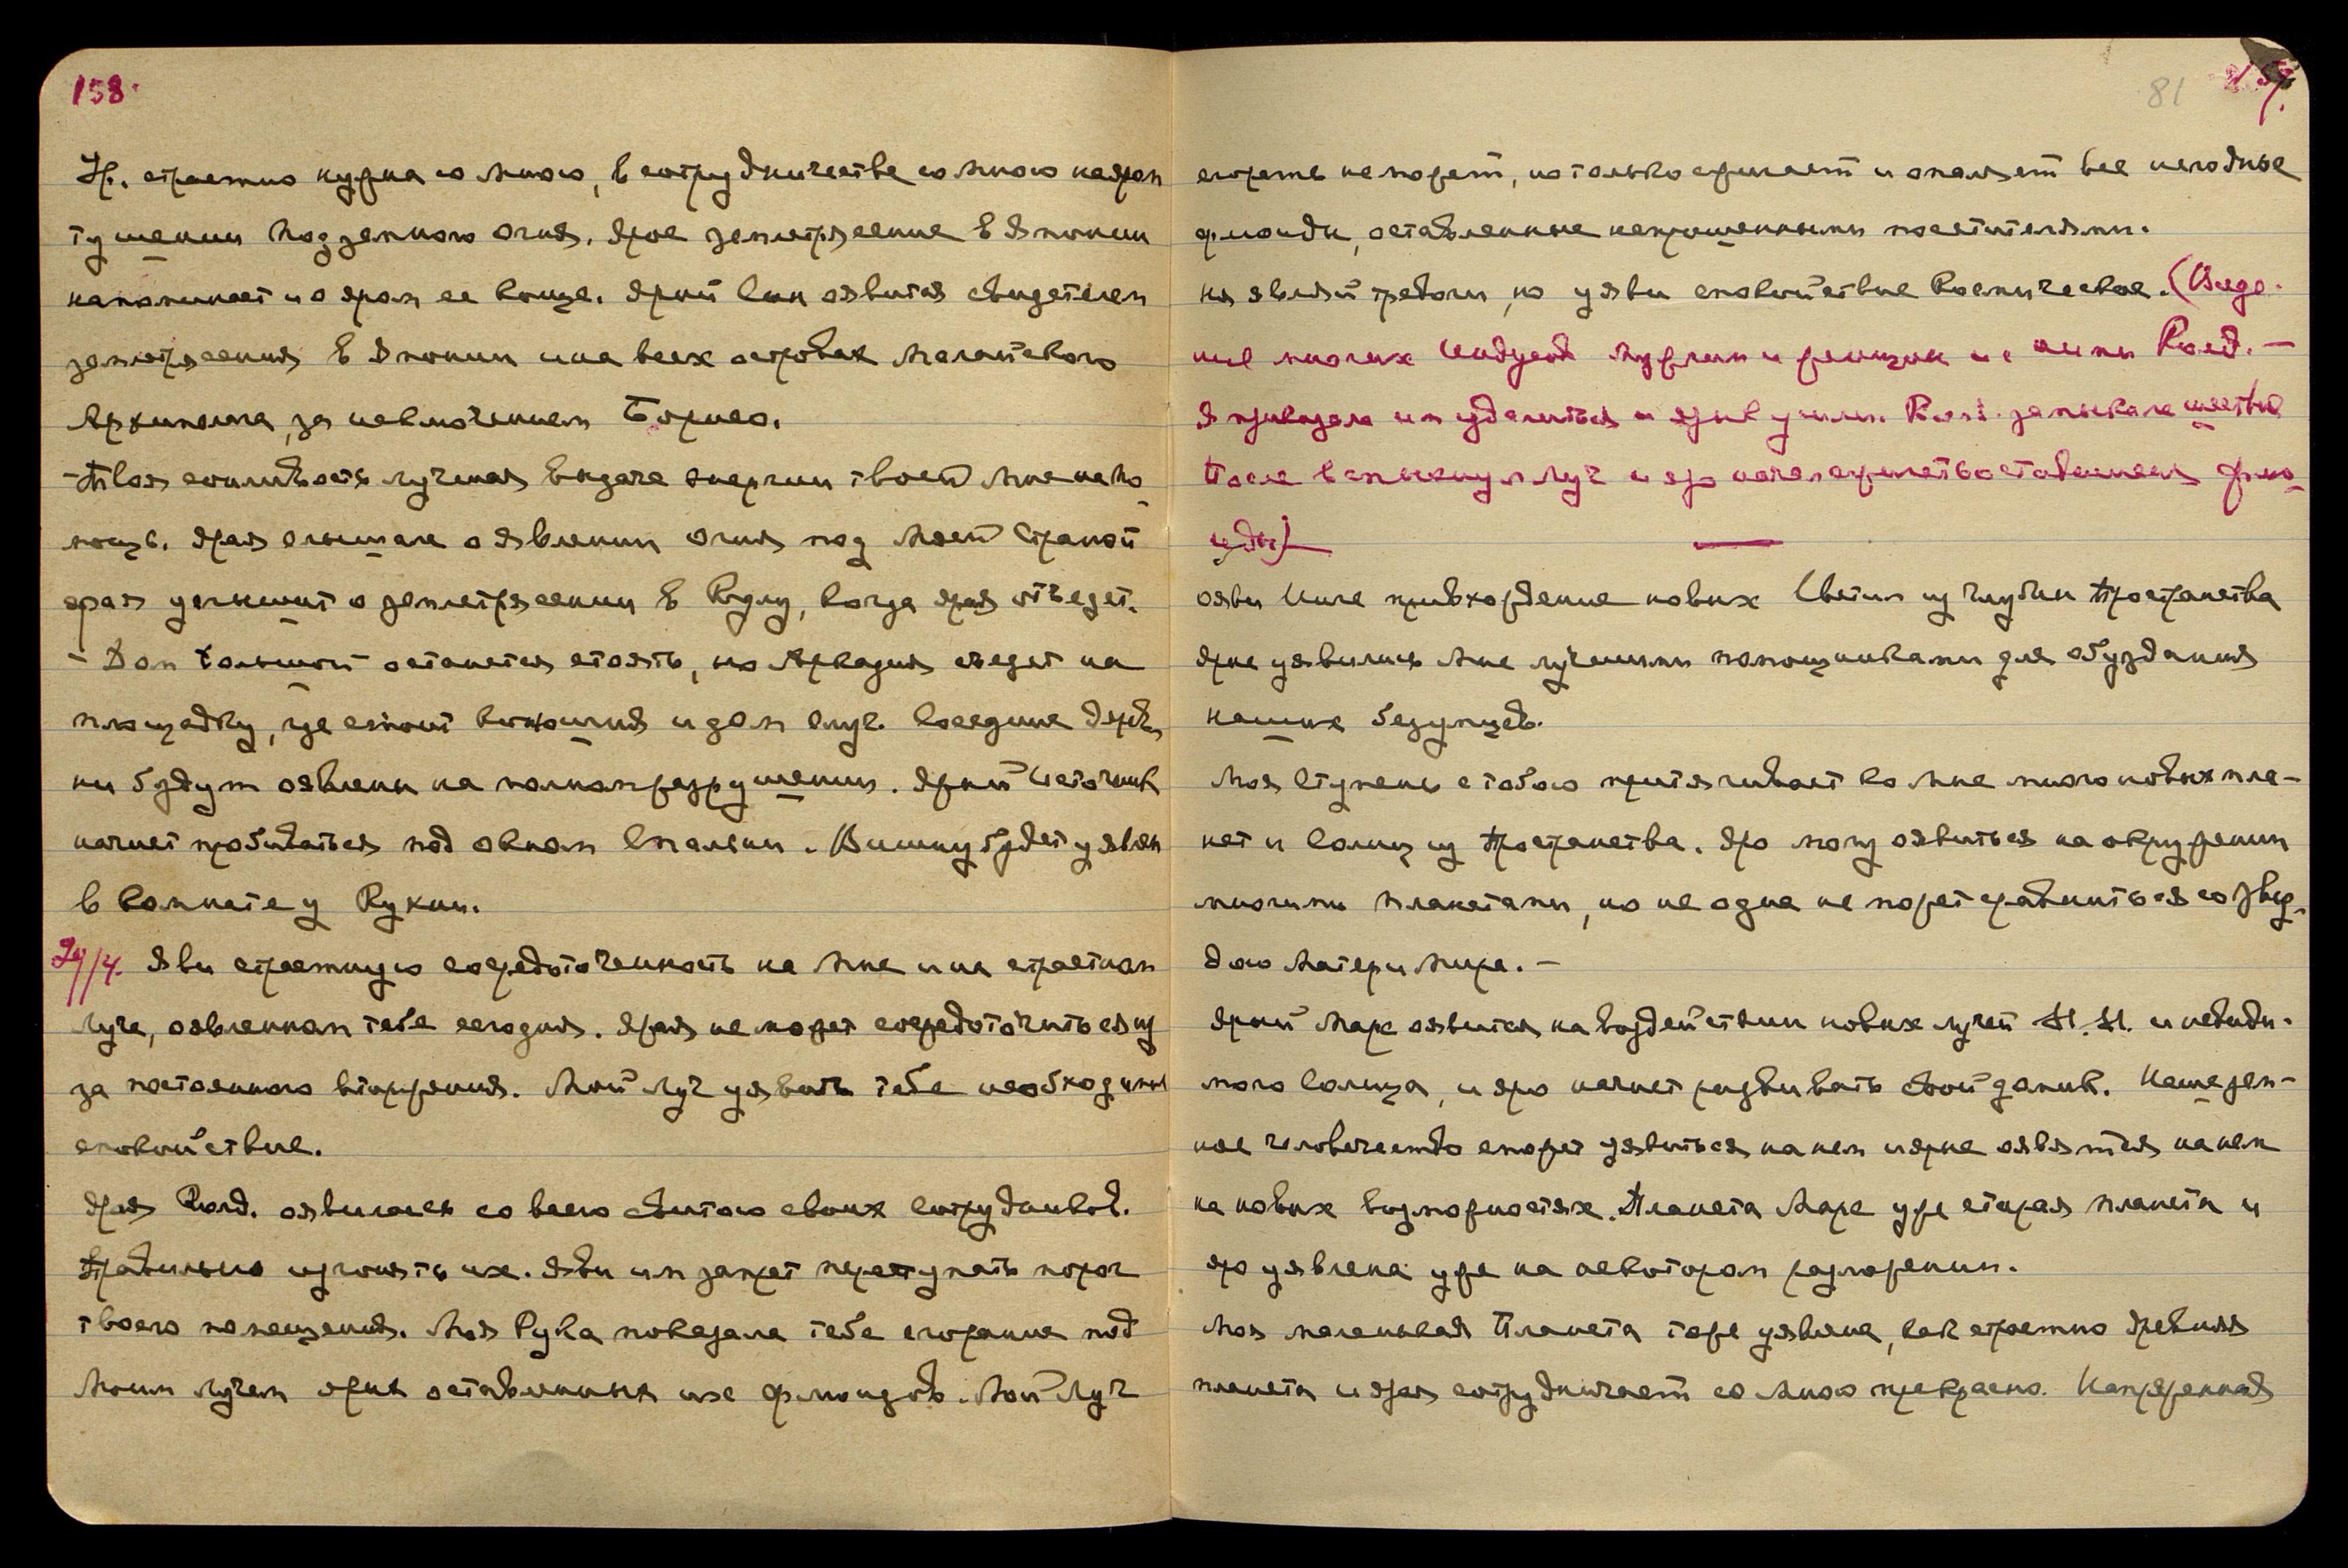 158.
Ур. страстно нужна со мною, в сотрудничестве со мною на яром
тушении подземного огня. Ярое землетрясение в Японии
напоминает и о яром ее конце. Ярый Сын оявится свидетелем
землетрясения в Японии и на всех островах Малайского
Архипелага, за исключением Борнео.
– Твоя сонливость лучшая выдача энергии твоей Мне на по-
мощь. Ярая слышала о явлении огня под Моей Страной
ярая услышит о землетрясении в Кулу, когда ярая отъедет.
– Дом большой останется стоять, но Аркадия съедет на
площадку, где стоит конюшня и дом слуг. Соседние дерев
ни будут оявлены на полном разрушении. Ярый Источник
начнет пробиваться под окном Спальни. Вишну будет уявлен
в комнате у Кухни.
29/4. Яви страстную сосредоточенность на Мне и на страстном
Луче, оявленном тебе сегодня. Ярая не может сосредоточиться из
за постоянного вторжения. Мой Луч уявить тебе необходимы
спокойствие.
Ярая Колд. оявилась со всею свитою своих сотрудников.
Правильно изгонять их. Яви им запрет переступать порог
твоего помещения. Моя Рука показала тебе сгорание под
Моим лучем ярых оставленных их флюидов. Мой Луч
81
159.
сгорать не может, но только сжигает и опаляет все негодные
флюиды, оставленные непрошенными посетителями.
Не являй тревоги, но уяви спокойствие Космическое. (Виде-
ние многих Индусов мужчин и женщин и с ними Колд. –
Я приказала им удалиться и ярые ушли. Колд. замыкала шествие
После вспыхнул Луч и яро начал сжигать оставшиеся флю-
иды)
Ояви Книге привхождение новых Светил из глубин Пространства
Ярые уявились Мне лучшими помощниками для обуздания
наших безумцев.
Моя Ступень с тобою притягивает ко Мне много новых пла-
нет и Солнц из Пространства. Яро могу оявиться на окружении
многими планетами, но не одна не может сравниться со Звез-
дою Матери Мира. –
Ярый Марс оявится на воздействии новых лучей Н. Н. и невиди-
мого Солнца, и яро начнет развивать свой даник. Наше зем-
ное человечество сможет уявиться на нем и ярые оявятся на нем
на новых возможностях. Планета Марс уже старая планета и
яро уявлена уже на некотором разложении.
Моя маленькая Планета тоже уявлена, как страстно древняя
планета и ярая сотрудничает со Мною прекрасно. Напряженная